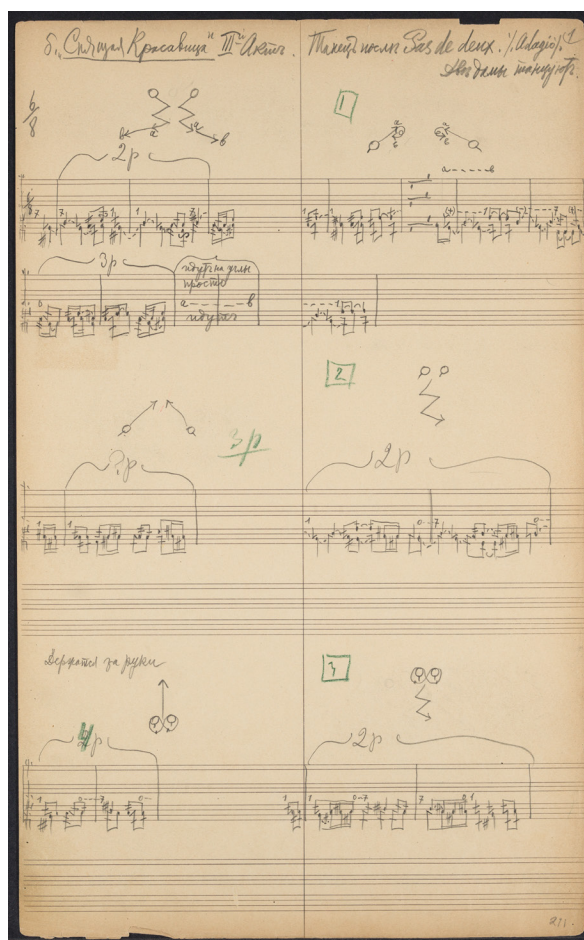 б. „Спящая Красавица" III Актъ. Танецъ послѣ Pas de deux. /. Adagio /. 1
Двѣ дамы танцуютъ.
6/8
1
a a b
a a
b b
2р
a - - - - - b
6/8
3р
идутъ на углы
просто
a - - - - b
идутъ
2
3р
?р
2р
Держатся за руки
3
4р
2р
211.